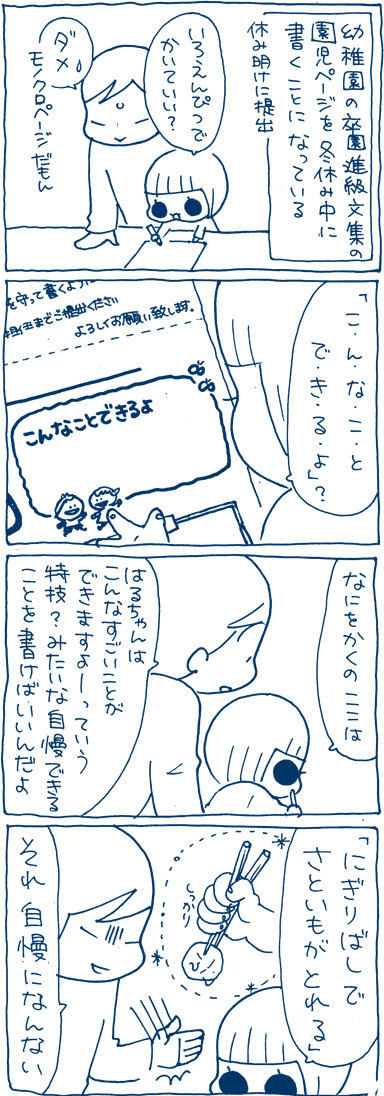 幼稚園の卒園進級文集の
園児ページを冬休み中に
書くことになっている
休み明けに提出
いろえんぴつで
かいていい?
ダメ
モノクロページだもん
「こ・ん・な・こ・と
で・き・る・よ」?
を守って書くように
担任までご提出ください
よろしくお願い致します。
こんなことできるよ
なにをかくの ここは
はるちゃんは
こんなすごいことが
できますよーっていう
特技?みたいな自慢できる
ことを書けばいいんだよ
「にぎりばしで
さといもがとれる」
しっかり
ひしっ
それ自慢になんない